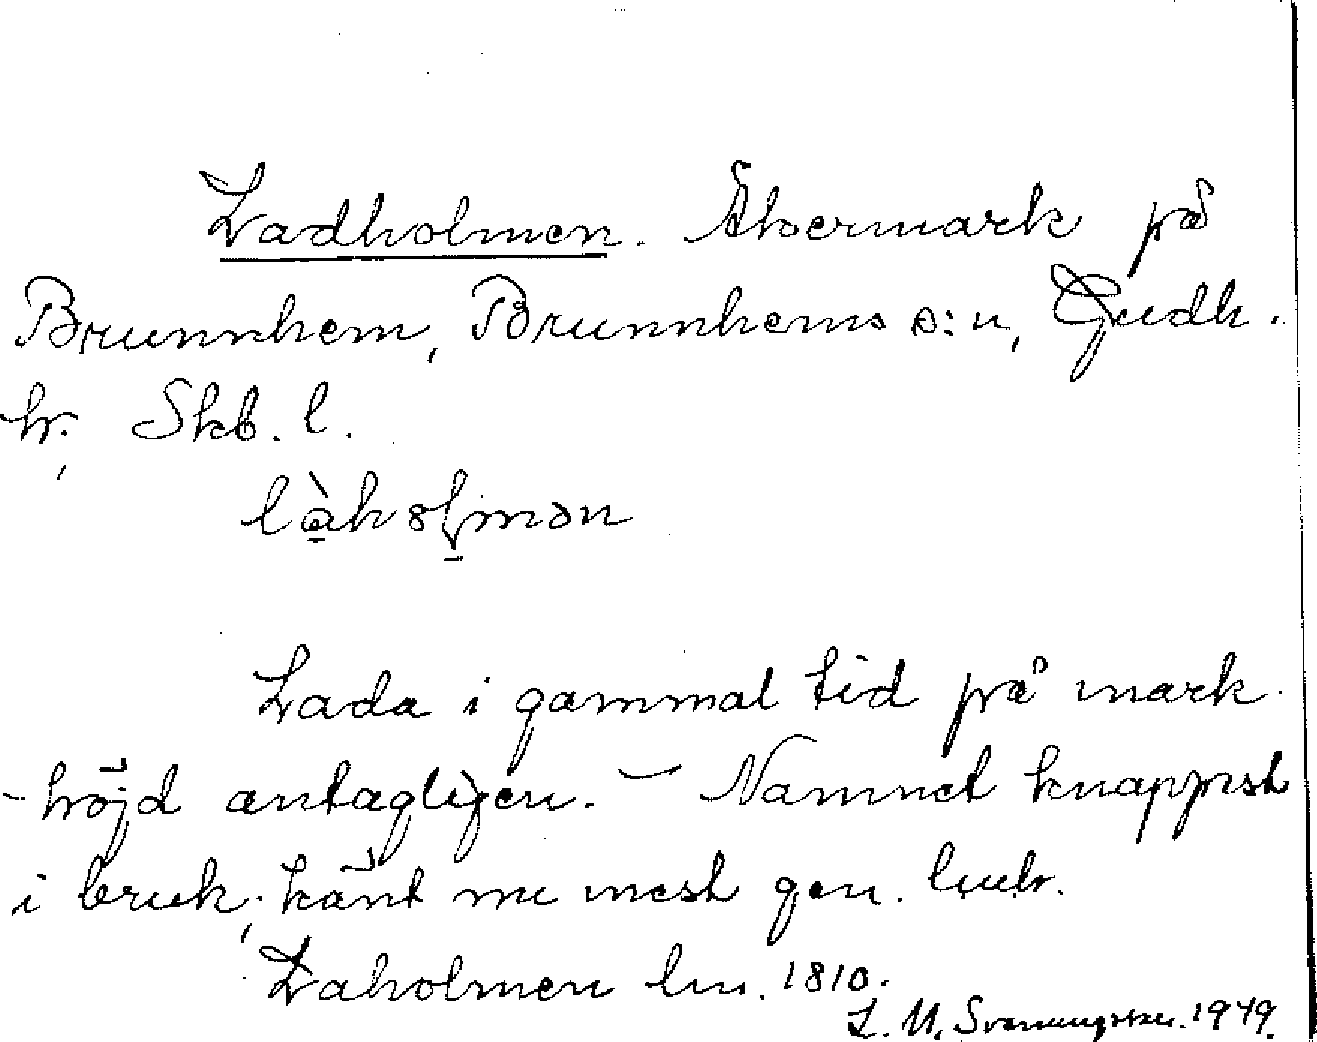 Ladholmen. Åkermark på
Brunnhem, Brunnhems s:n, Gudh.
hr; Skb. l.
làhoḷmən
Lada i gammal tid på mark
-höjd antagligen. - Namnet knappast
i bruk; känt nu mest gen. lantr.
Laholmen lm. 1810.
L. M. Svenungsson. 1949.